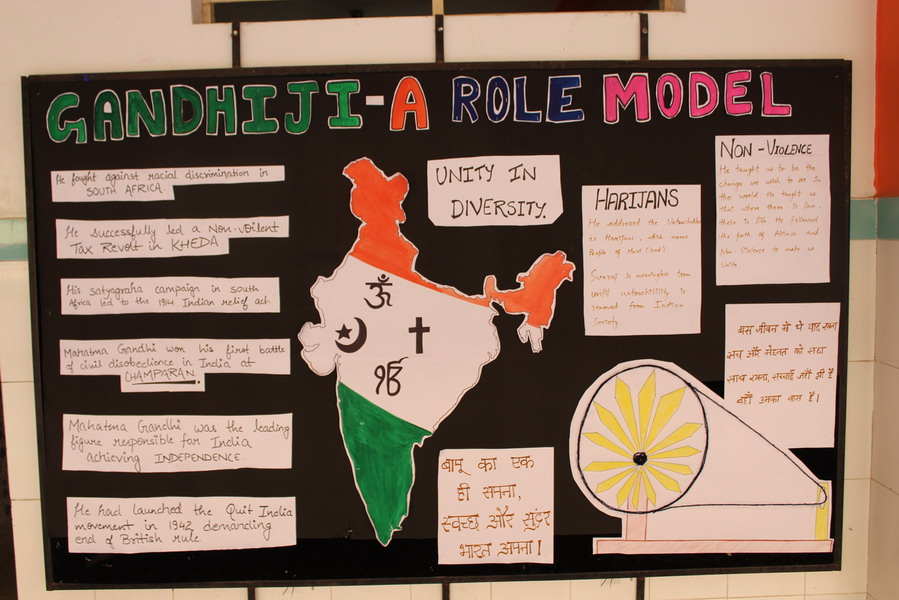 GANDHIJI-A ROLE MODEL
He fought against racial discrimination in
SOUTH AFRICA.
He successfully led a Non-voilent
Tax Revolt in KHEDA
His satyagraha campaign in south
Africa led to the 1914 Indian relief act.
Mahatma Gandhi won his first battle
of civil disobedience in India at
CHAMPARAN.
Mahatma Gandhi was the leading
figure responsible for India
achieving INDEPENDENCE.
He had launched the Quit India
movement in 1942 demanding
end of British rule.
UNITY IN
DIVERSITY.
ॐ
ੴ
बापू का एक
ही सपना,
स्वच्छ और सुंदर
भारत अपना।
HARIJANS
He addressed the Untouchables
as Harijans, which means
People of Hari (God).
Swaraj is meaningless term
until untouchibility is
removed from Indian
Society.
NON-VIOLENCE
He taught us to be the
change we wish to see in
the world. He taught us
that where there is love,
there is life. He followed
the path of Ahimsa and
Non-Violence to make us
Unite.
बस जीवन में ये याद रखना
सच और मेहनत का सदा
साथ रखना, सच्चाई जहाँ भी है
वहाँ उनका वास है।